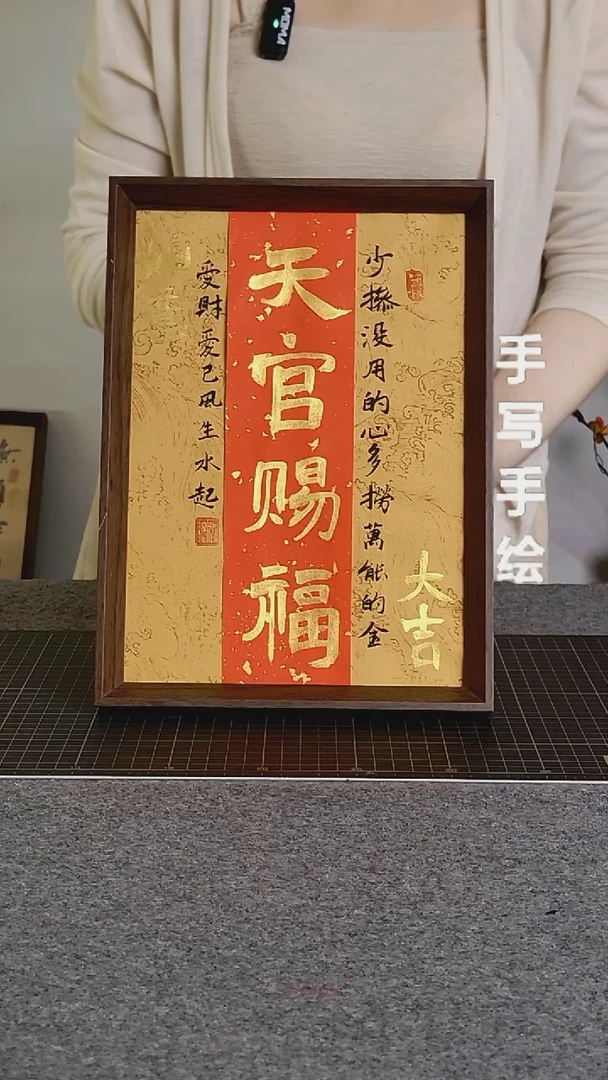 少操没用的心多撈萬能的金
天官赐福
愛财愛己風生水起
大吉
手写手绘
MOMA